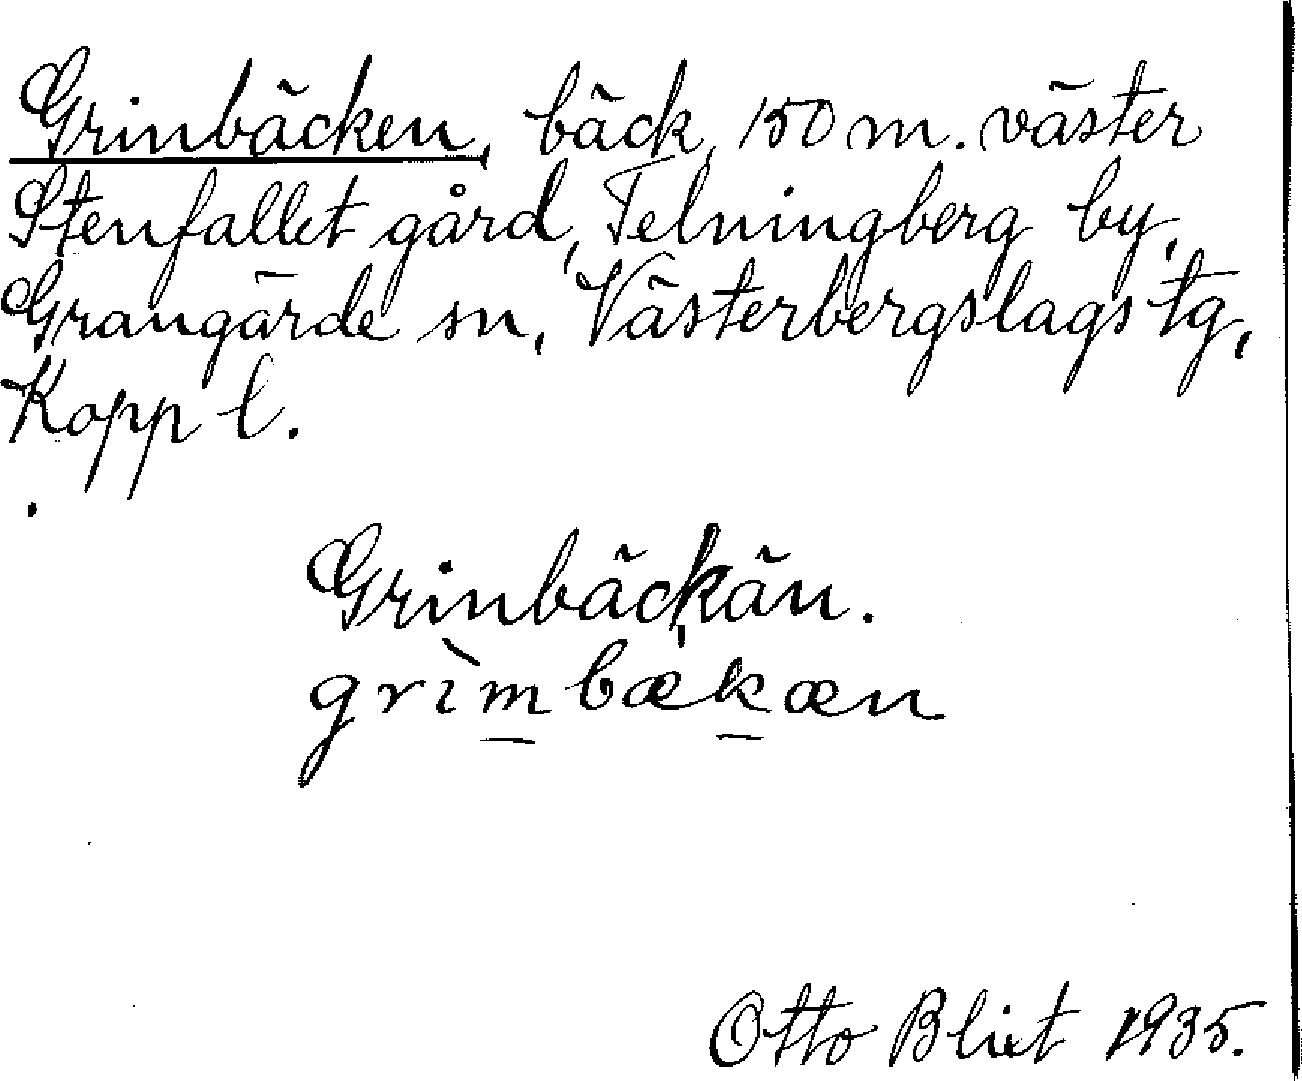 Grinbäcken, bäck, 150 m. väster
Stenfallet gård, Telningberg by,
Grangärde sn, Västerbergslags tg,
Kopp l.
Grinbäckän.
grìmbækæn
Otto Bliet 1935.